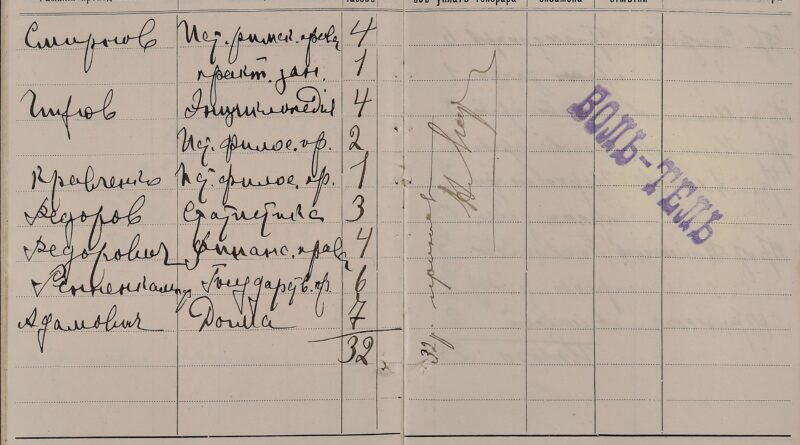 экзамена
Смирнов Ист. римск. права 4
практ. зан. 1
Энциклопедія 4
Ист. филос. пр. 2
Кравченко Ист. филос. пр. 1
Федоров Статистика 3
Федорович Финанс. права 4
Ренненкампф Государств. пр. 6
Адамович Догма 7
32
32 р.
ВОЛЬ-ТЕЛЬ